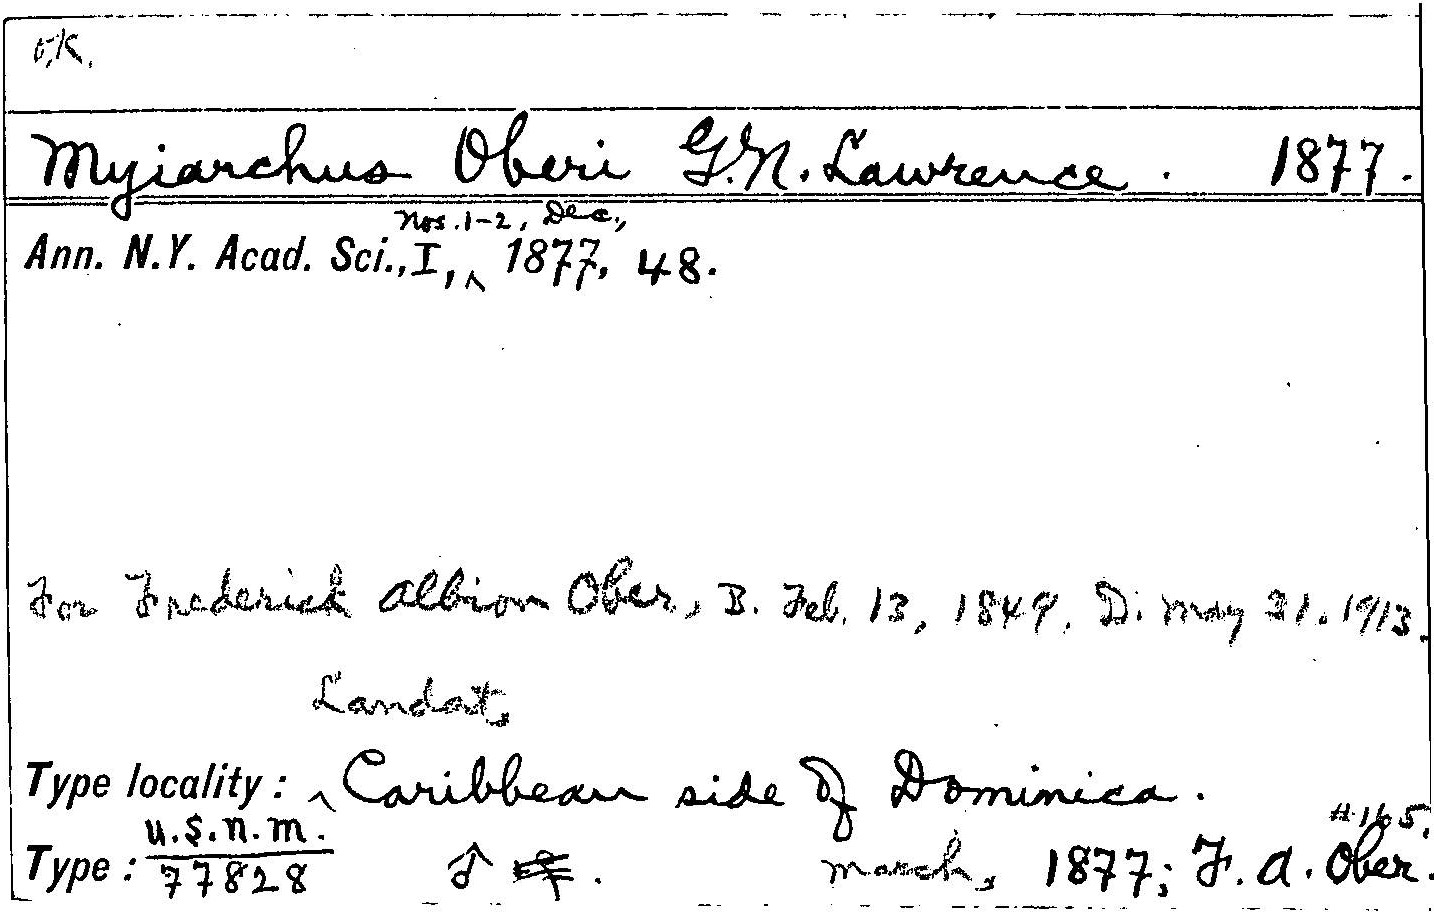 O.K.
Myiarchus Oberi G.N. Lawrence. 1877.
Nos. 1-2, Dec.,
Ann. N.Y. Acad. Sci., I, ^ 1877, 48.
For Frederick Albion Ober, B. Feb. 13, 1849. D. May 31. 1913.
Landat,
Type locality: ^ Caribbean side of Dominica.
#165.
U.S.N.M.
Type: 77828 ♂ . March, 1877; F. A. Ober.